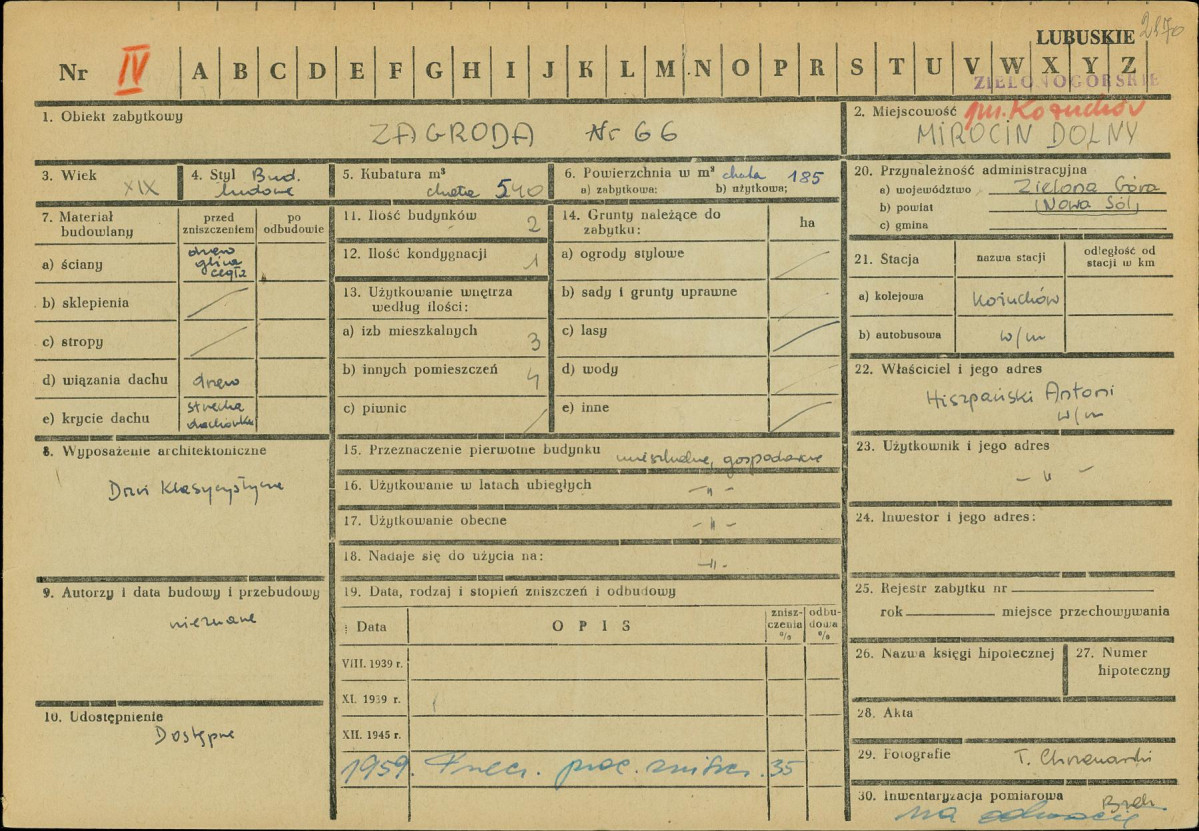 LUBUSKIE 2570
Nr IV A B C D E F G H I J K L M N O P R S T U V W X Y Z
ZIELONOGÓRSKIE
1. Obiekt zabytkowy
ZAGRODA Nr 66
2. Miejscowość gm. Kożuchów
MIROCIN DOLNY
3. Wiek
XIX
4. Styl Bud.
ludowe
5. Kubatura m³
chata 540
6. Powierzchnia w m² chata 185
a) zabytkowa: b) użytkowa;
20. Przynależność administracyjna
a) województwo Zielona Góra
b) powiat (Nowa Sól)
c) gmina
7. Materiał
budowlany
przed
zniszczeniem
po
odbudowie
a) ściany
drewno
glina
cegła
b) sklepienia
c) stropy
d) wiązania dachu drewno
e) krycie dachu
strzecha
dachówka
11. Ilość budynków 2
12. Ilość kondygnacji 1
13. Użytkowanie wnętrza
według ilości:
a) izb mieszkalnych 3
b) innych pomieszczeń 4
c) piwnic
14. Grunty należące do
zabytku:
ha
a) ogrody stylowe
b) sady i grunty uprawne
c) lasy
d) wody
e) inne
21. Stacja
nazwa stacji
odległość od
stacji w km
a) kolejowa Kożuchów
b) autobusowa w/m
22. Właściciel i jego adres
Hiszpański Antoni
w/m
8. Wyposażenie architektoniczne
Drzwi klasycystyczne
15. Przeznaczenie pierwotne budynku mieszkalne, gospodarcze
16. Użytkowanie w latach ubiegłych -"-
17. Użytkowanie obecne -"-
18. Nadaje się do użycia na: -"-
23. Użytkownik i jego adres
-"-
24. Inwestor i jego adres:
9. Autorzy i data budowy i przebudowy
nieznane
19. Data, rodzaj i stopień zniszczeń i odbudowy
Data
OPIS
znisz-
czenia
%
odbu-
dowa
%
VIII. 1939 r.
XI. 1939 r.
XII. 1945 r.
1959. proc. zniszcz. 35
25. Rejestr zabytku nr
rok miejsce przechowywania
26. Nazwa księgi hipotecznej
27. Numer
hipoteczny
10. Udostępnienie
Dostępne
28. Akta
29. Fotografie T.
30. Inwentaryzacja pomiarowa Brak
na odwrocie